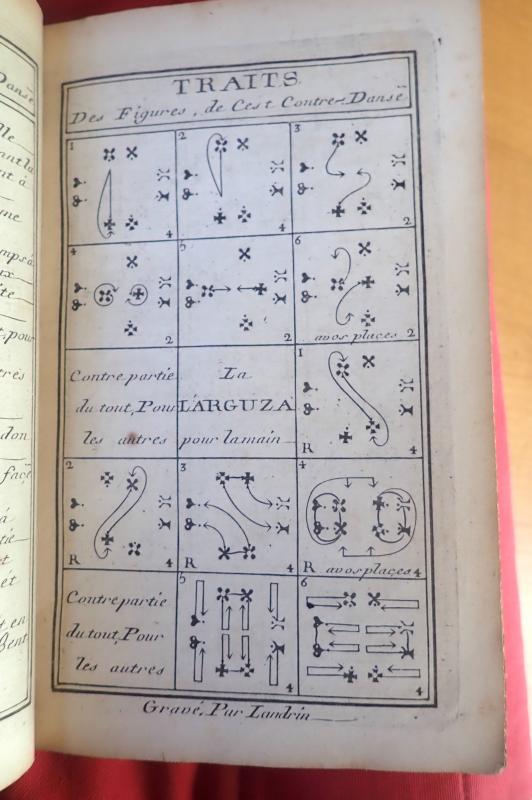 TRAITS
Des Figures, de Cest Contre-Danse
1
4
2
4
3
2
4
2
5
2
6
avos places 2
Contre partie
du tout, Pour
les autres
La
LARGUZA
pour la main
1
R 4
2
R 4
3
4
4
R avos places 4
Contre partie
du tout, Pour
les autres
5
4
6
4
Gravé, Par Landrin